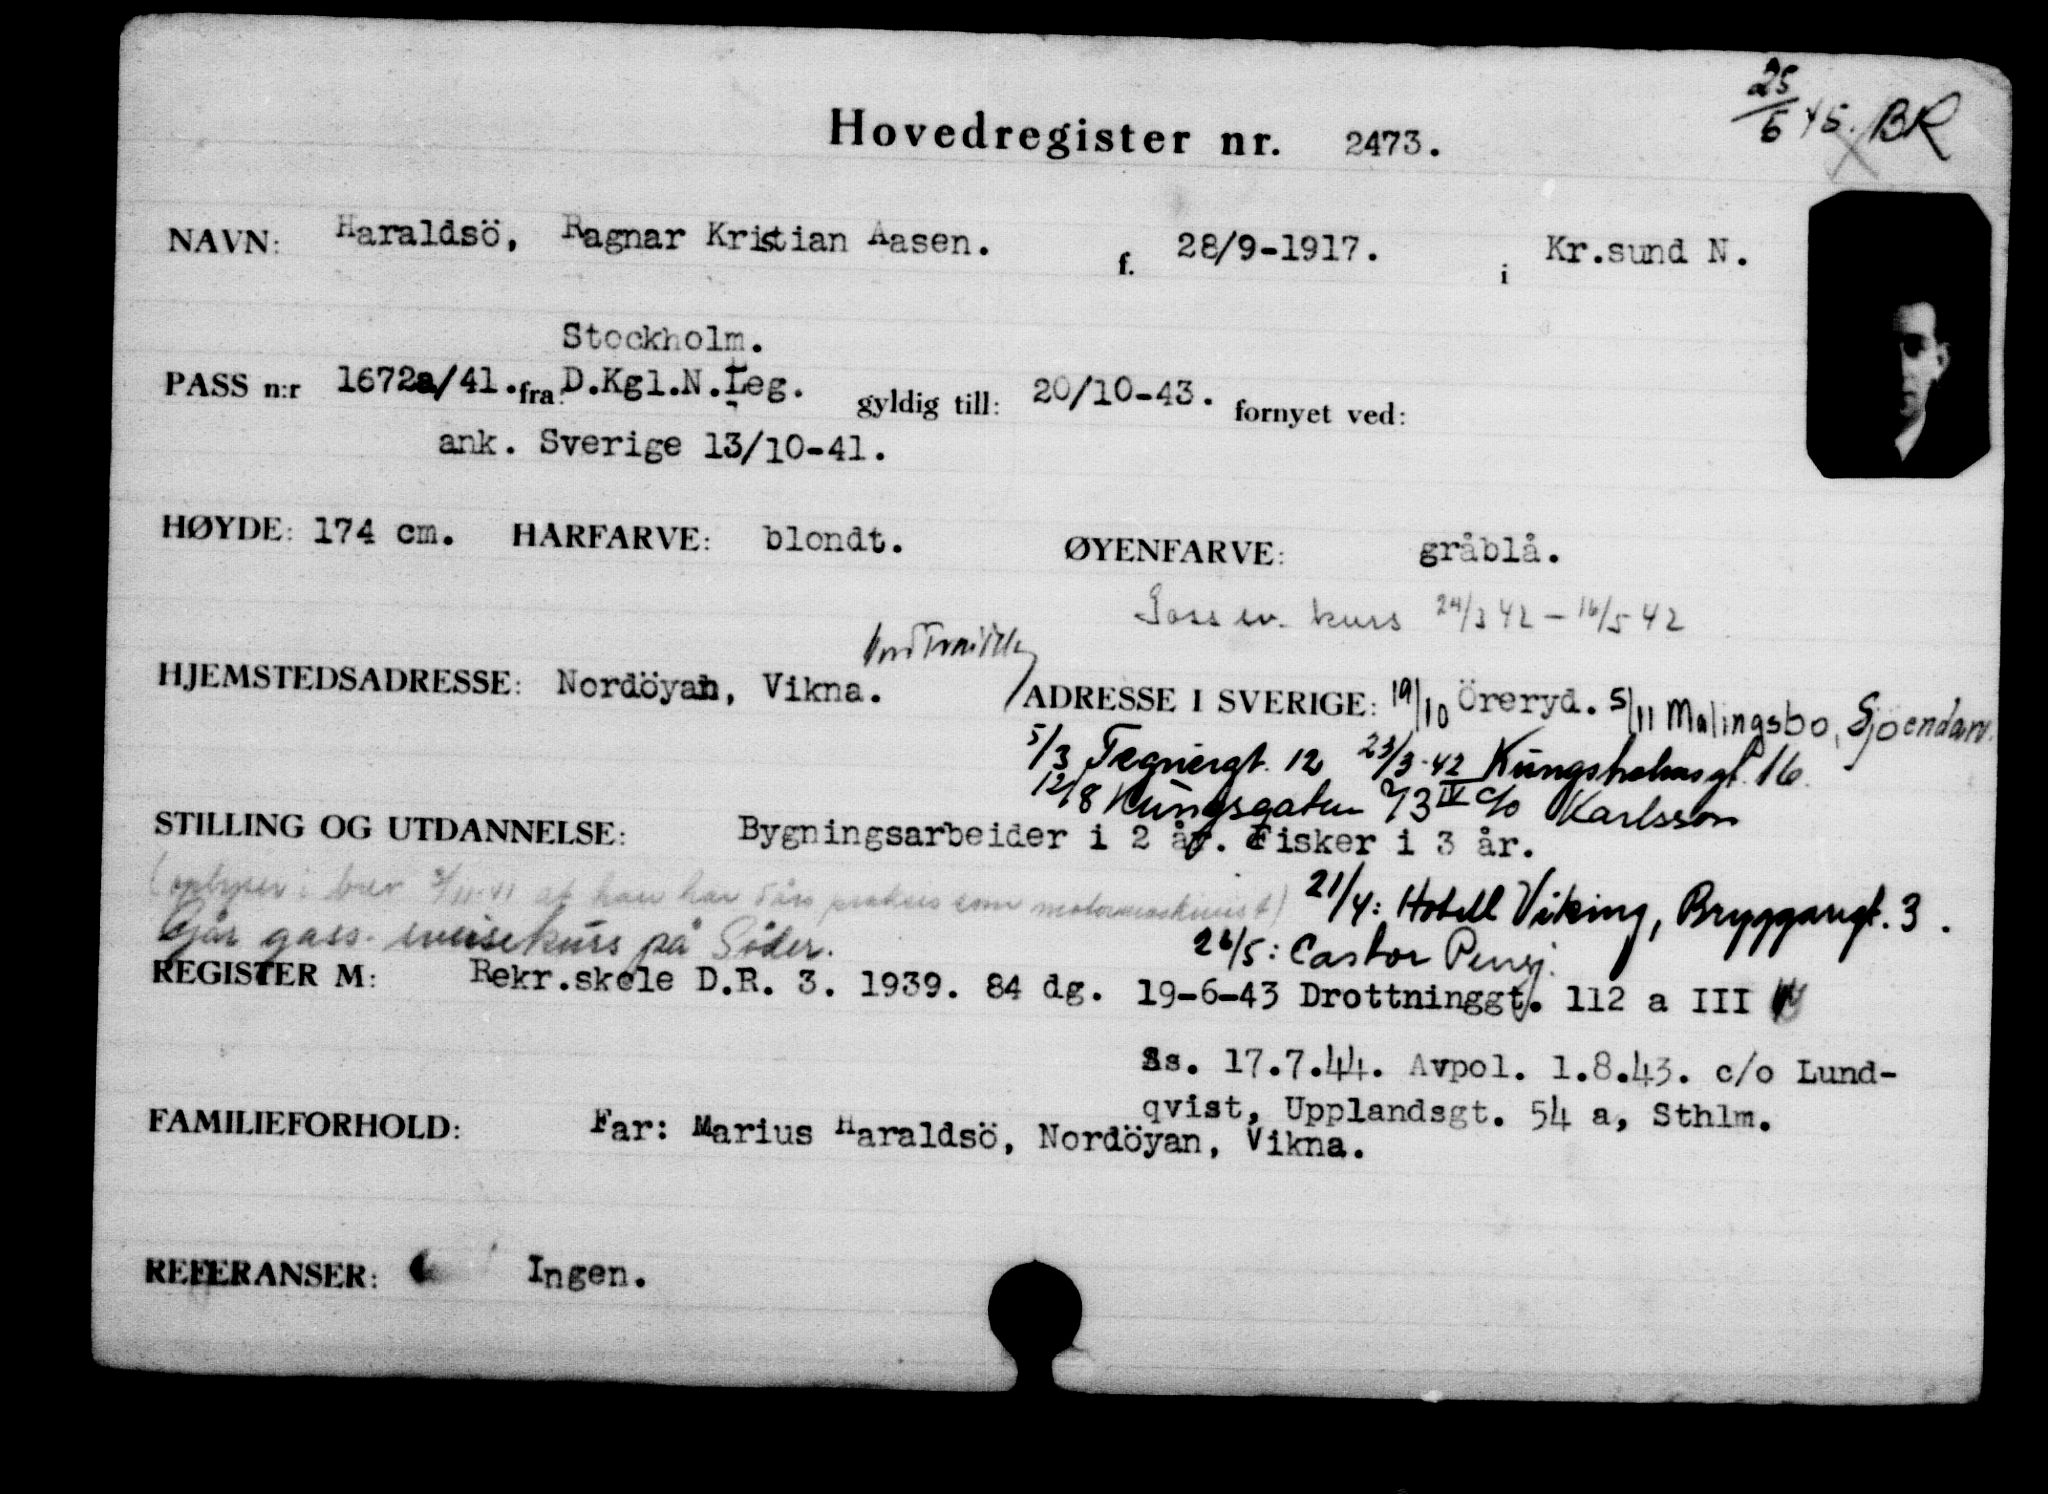 25/5 45. BR
Hovedregister nr. 2473.
NAVN: Haraldsö, Ragnar Kristian Aasen. f. 28/9-1917. i Kr.sund N.
Stockholm.
PASS n:r 1672a/41. fra: D.Kgl.N.Leg. gyldig till: 20/10-43. fornyet ved:
ank. Sverige 13/10-41.
HØYDE: 174 cm. HARFARVE: blondt. ØYENFARVE: gråblå.
kurs 24/3 42 – 16/5 42
HJEMSTEDSADRESSE: Nordöyan, Vikna. ADRESSE I SVERIGE: 19/10 Öreryd. 5/11 Malingsbo,
5/3 Tegnérgt. 12 23/3-42 Kungsholmsgt. 16.
12/8 Kungsgatan 73 IV c/o Karlsson
STILLING OG UTDANNELSE: Bygningsarbeider i 2 år. Fisker i 3 år.
(oplyser i brev 3/11-41 at han har praksis som motormaskinist)
21/4: Hotell Viking, Bryggargt. 3.
Går gass-sveisekurs på Söder.
26/5: Castor Pensj.
REGISTER M: Rekr.skole D.R. 3. 1939. 84 dg. 19-6-43 Drottninggt. 112 a III
Ss. 17.7.44. Avpol. 1.8.43. c/o Lund-
qvist, Upplandsgt. 54 a, Sthlm.
FAMILIEFORHOLD: Far: Marius Haraldsö, Nordöyan, Vikna.
REFERANSER: Ingen.